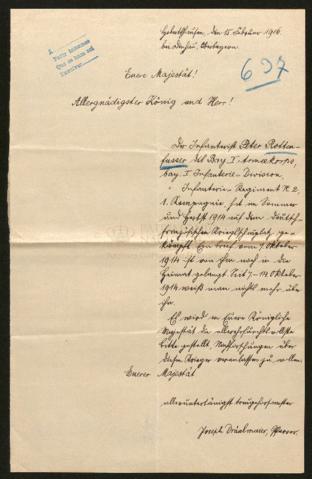 Gebertshausen, den 15. Februar 1916.
bei Dachau, Oberbayern.
697
Euere Majestät!
Allergnädigster König und Herr!
Der Infanterist Peter Rotten-
fusser des Bay. I. Armeekorps,
bay. I. Infanterie-Division,
Infanterie-Regiment N. 2,
1. Kompagnie, hat im Sommer
und Herbst 1914 auf dem deutsch-
französischen Kriegsschauplatz ge-
kämpft. Ein Brief vom 7. Oktober
1914 ist von ihm noch in die
Heimat gelangt. Seit 7.-14. Oktober
1914 weiß man nichts mehr über
ihn.
Es wird an Euere Königliche
Majestät die allerehrfurchtsvollste
Bitte gestellt, Nachforschungen über
diesen Krieger veranlassen zu wollen.
Euerer Majestät
alleruntertänigst treugehorsamster
Joseph Pfarrer.